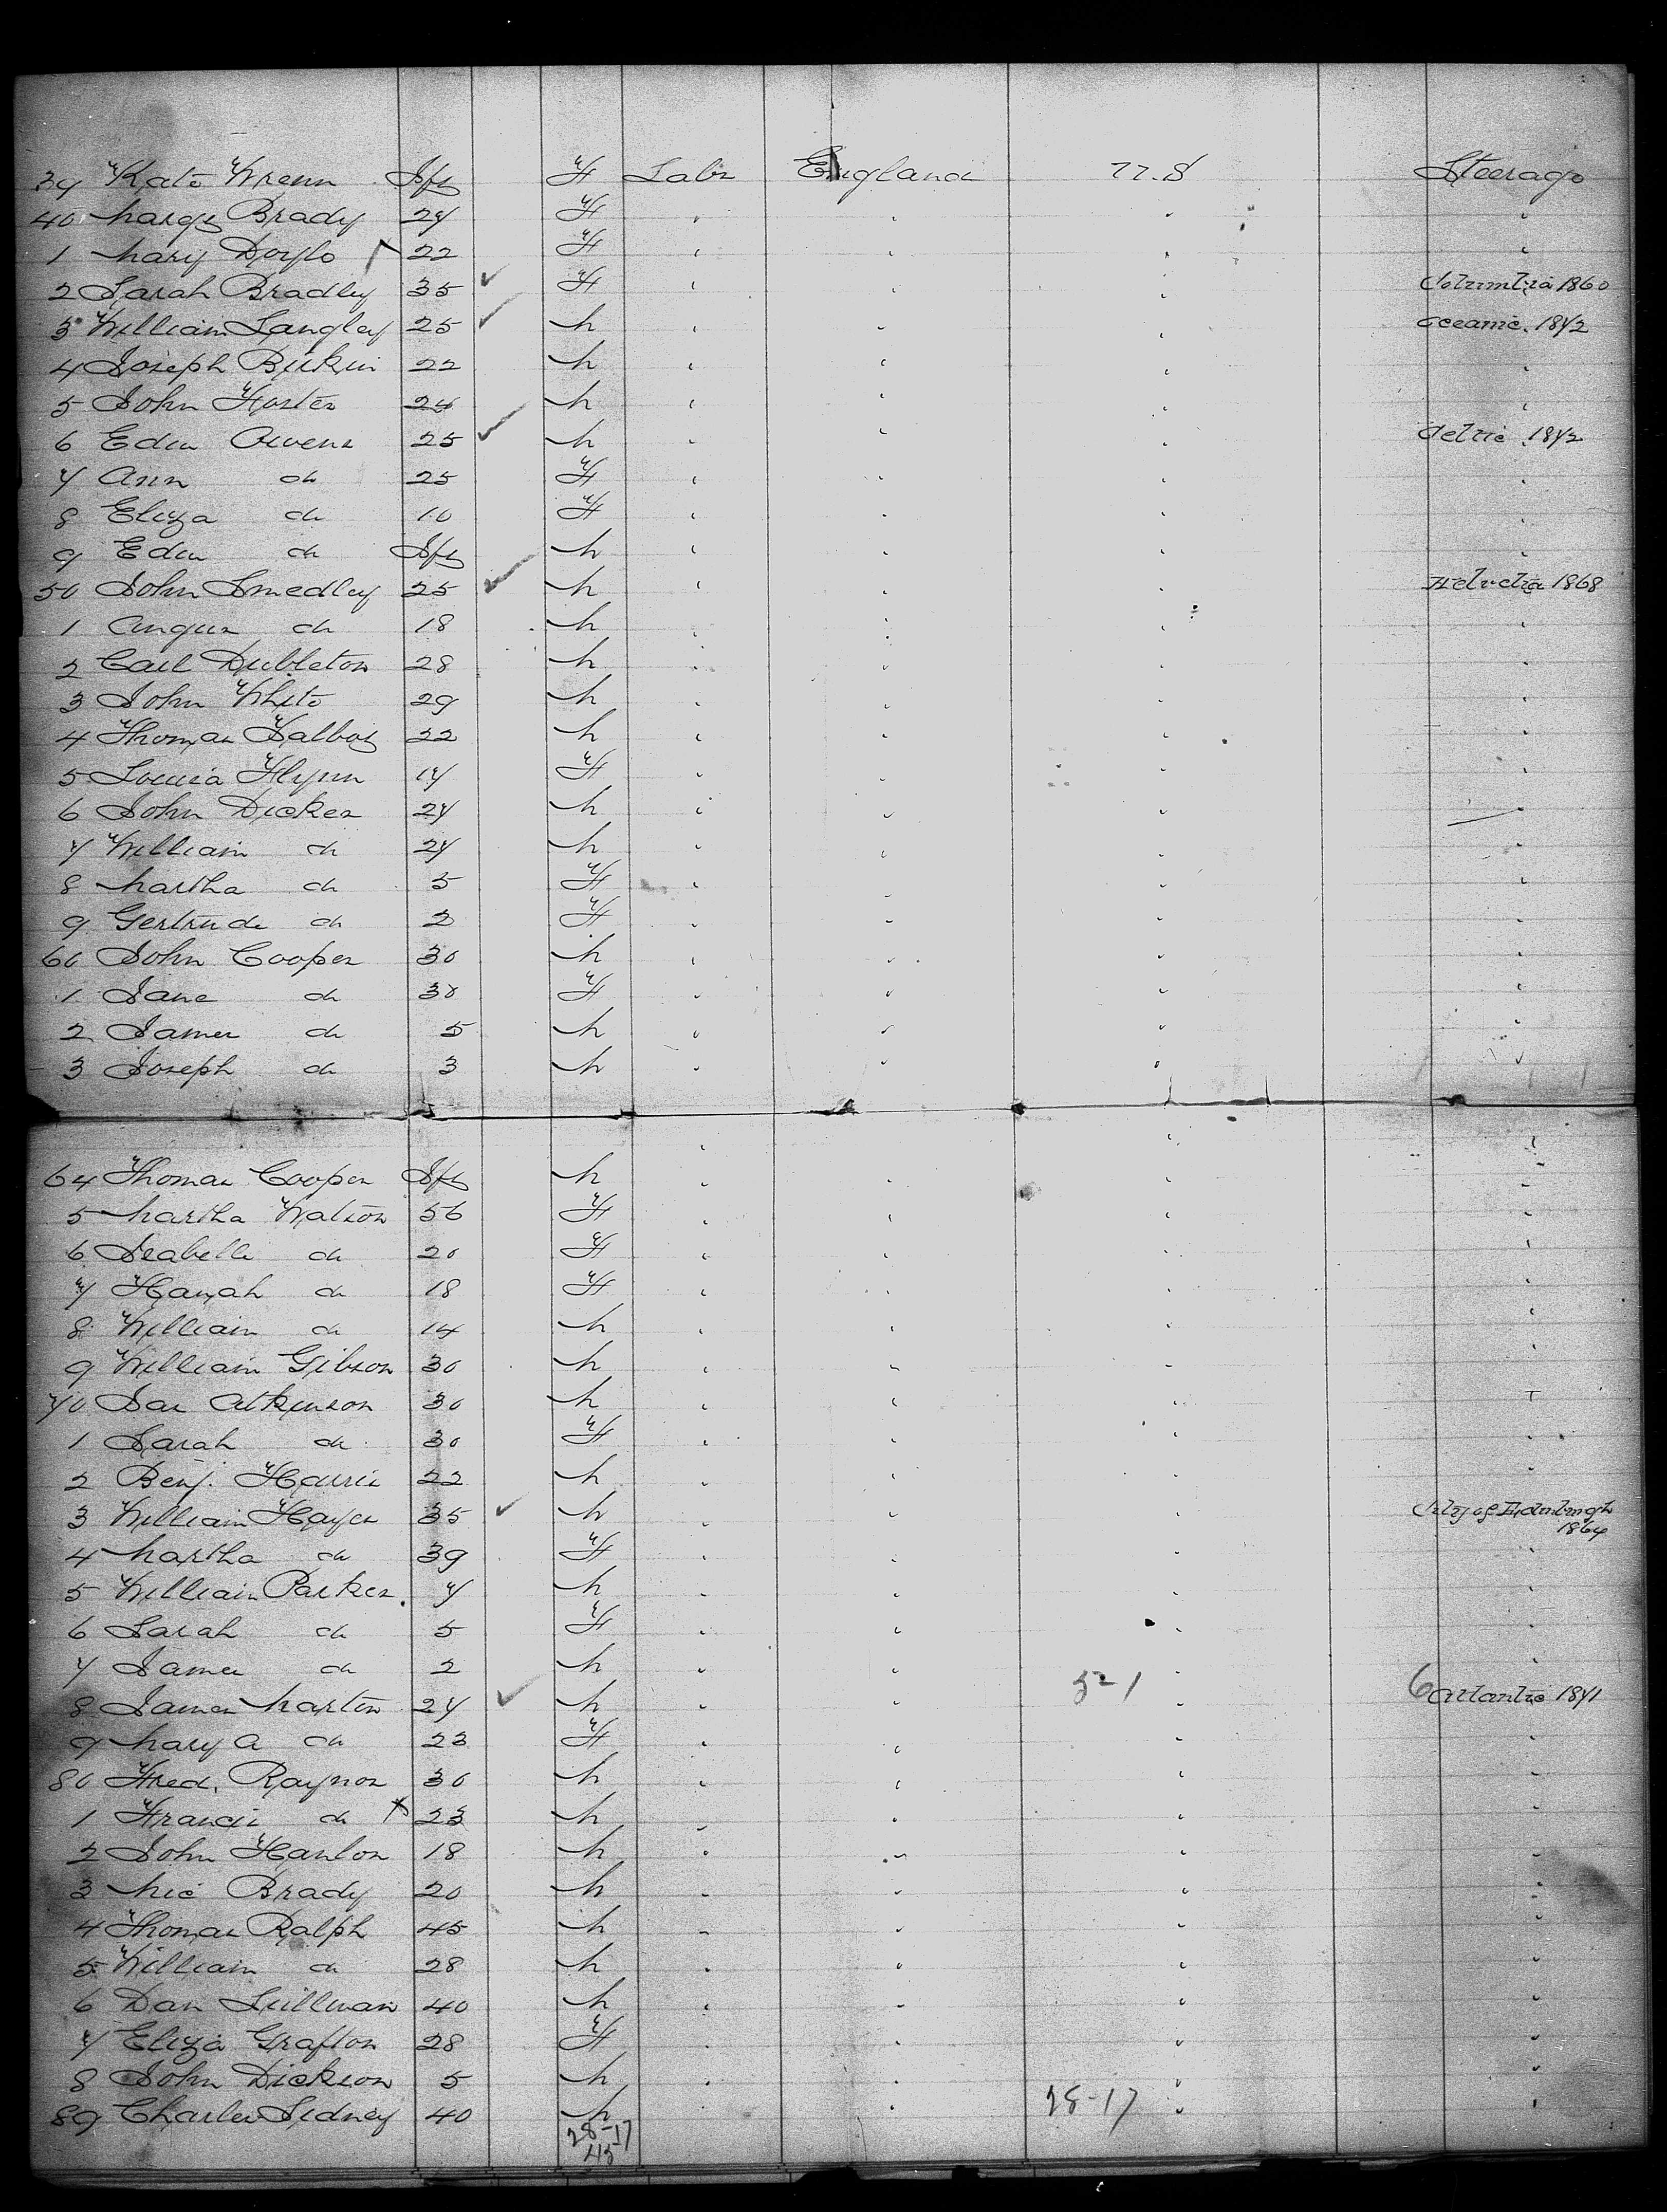 39 Kate Wrenn Inf F Labr England U.S Steerage
40 Margt Brady 27 F
1 Mary Doyle 22 F
2 Sarah Bradley 35 F 1860
3 William Langley 25 M Oceanic 1872
4 Joseph 22 M
5 John Foster 24 M
6 Edw Owens 25 M Celtic 1872
7 Ann do 25 F
8 Eliza do 10 F
9 Edw do Inf M
50 John Smedley 25 M Helvetia 1868
1 Angus do 18 M
2 Carl Dubleton 28 M
3 John White 29 M
4 Thomas Talbot 22 M
5 Louisa Flynn 17 F
6 John Dicker 27 M
7 William do 27 M
8 Martha do 5 F
9 Gertrude do 2 F
60 John Cooper 30 M
1 Jane do 30 F
2 James do 5 M
3 Joseph do 3 M
64 Thomas Cooper Inf M
5 Martha Watson 56 F
6 Isabella do 20 F
7 Hanah do 18 F
8 William do 14 M
9 William Gibson 30 M
70 Jas Atkinson 30 M
1 Sarah do 30 F
2 Benj. Harris 22 M
3 William Hayes 35 M City of Edinburgh
1864
4 Martha do 39 F
5 William Parker 7 M
6 Sarah do 5 F
7 James do 2 M
8 James Martin 27 M 52-1 6 Atlantic 1871
9 Mary A do 23 F
80 Fred. Raynor 30 M
1 Francis do 23 M
2 John Hanlon 18 M
3 Mic Brady 20 M
4 Thomas Ralph 45 M
5 William do 28 M
6 Dan Sullivan 40 M
7 Eliza Grafton 28 F
8 John Dickson 5 M
89 Charles Sidney 40 M 28-17
28-17
45